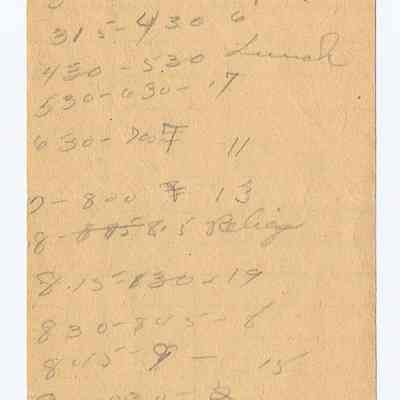 315-430 6
430-530 Lunch
530-630-17
630-700 11
7-800 13
8-8.15 Relief
8.15-830-19
830-845-8
845-9-15